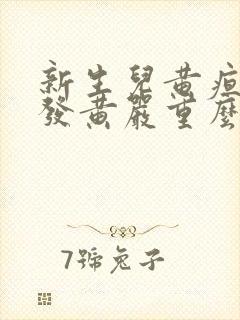 新生兒黃疸
發黃嚴重麼
7號兔子